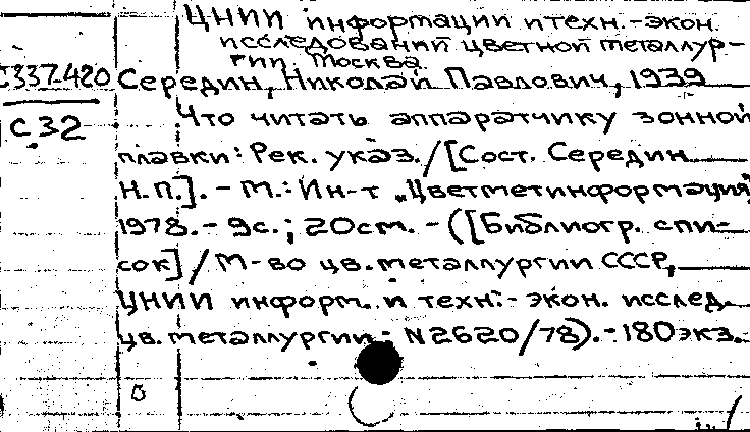 ЦНИИ информации и техн.-экон.
исследований цветной металлур-
гии. Москва.
С337.420 Середин, Николай Павлович, 1939
С32 Что читать аппаратчику зонной
плавки: Рек. указ./[Сост. Середин
Н.П.]. - М.: Ин-т „Цветметинформация",
1978. - 9с.; 20см. - ([Библиогр. спи-
сок] / М-во цв. металлургии СССР,
ЦНИИ информ. и техн.-экон. исслед.
цв. металлургии; N2620/78). - 180экз.